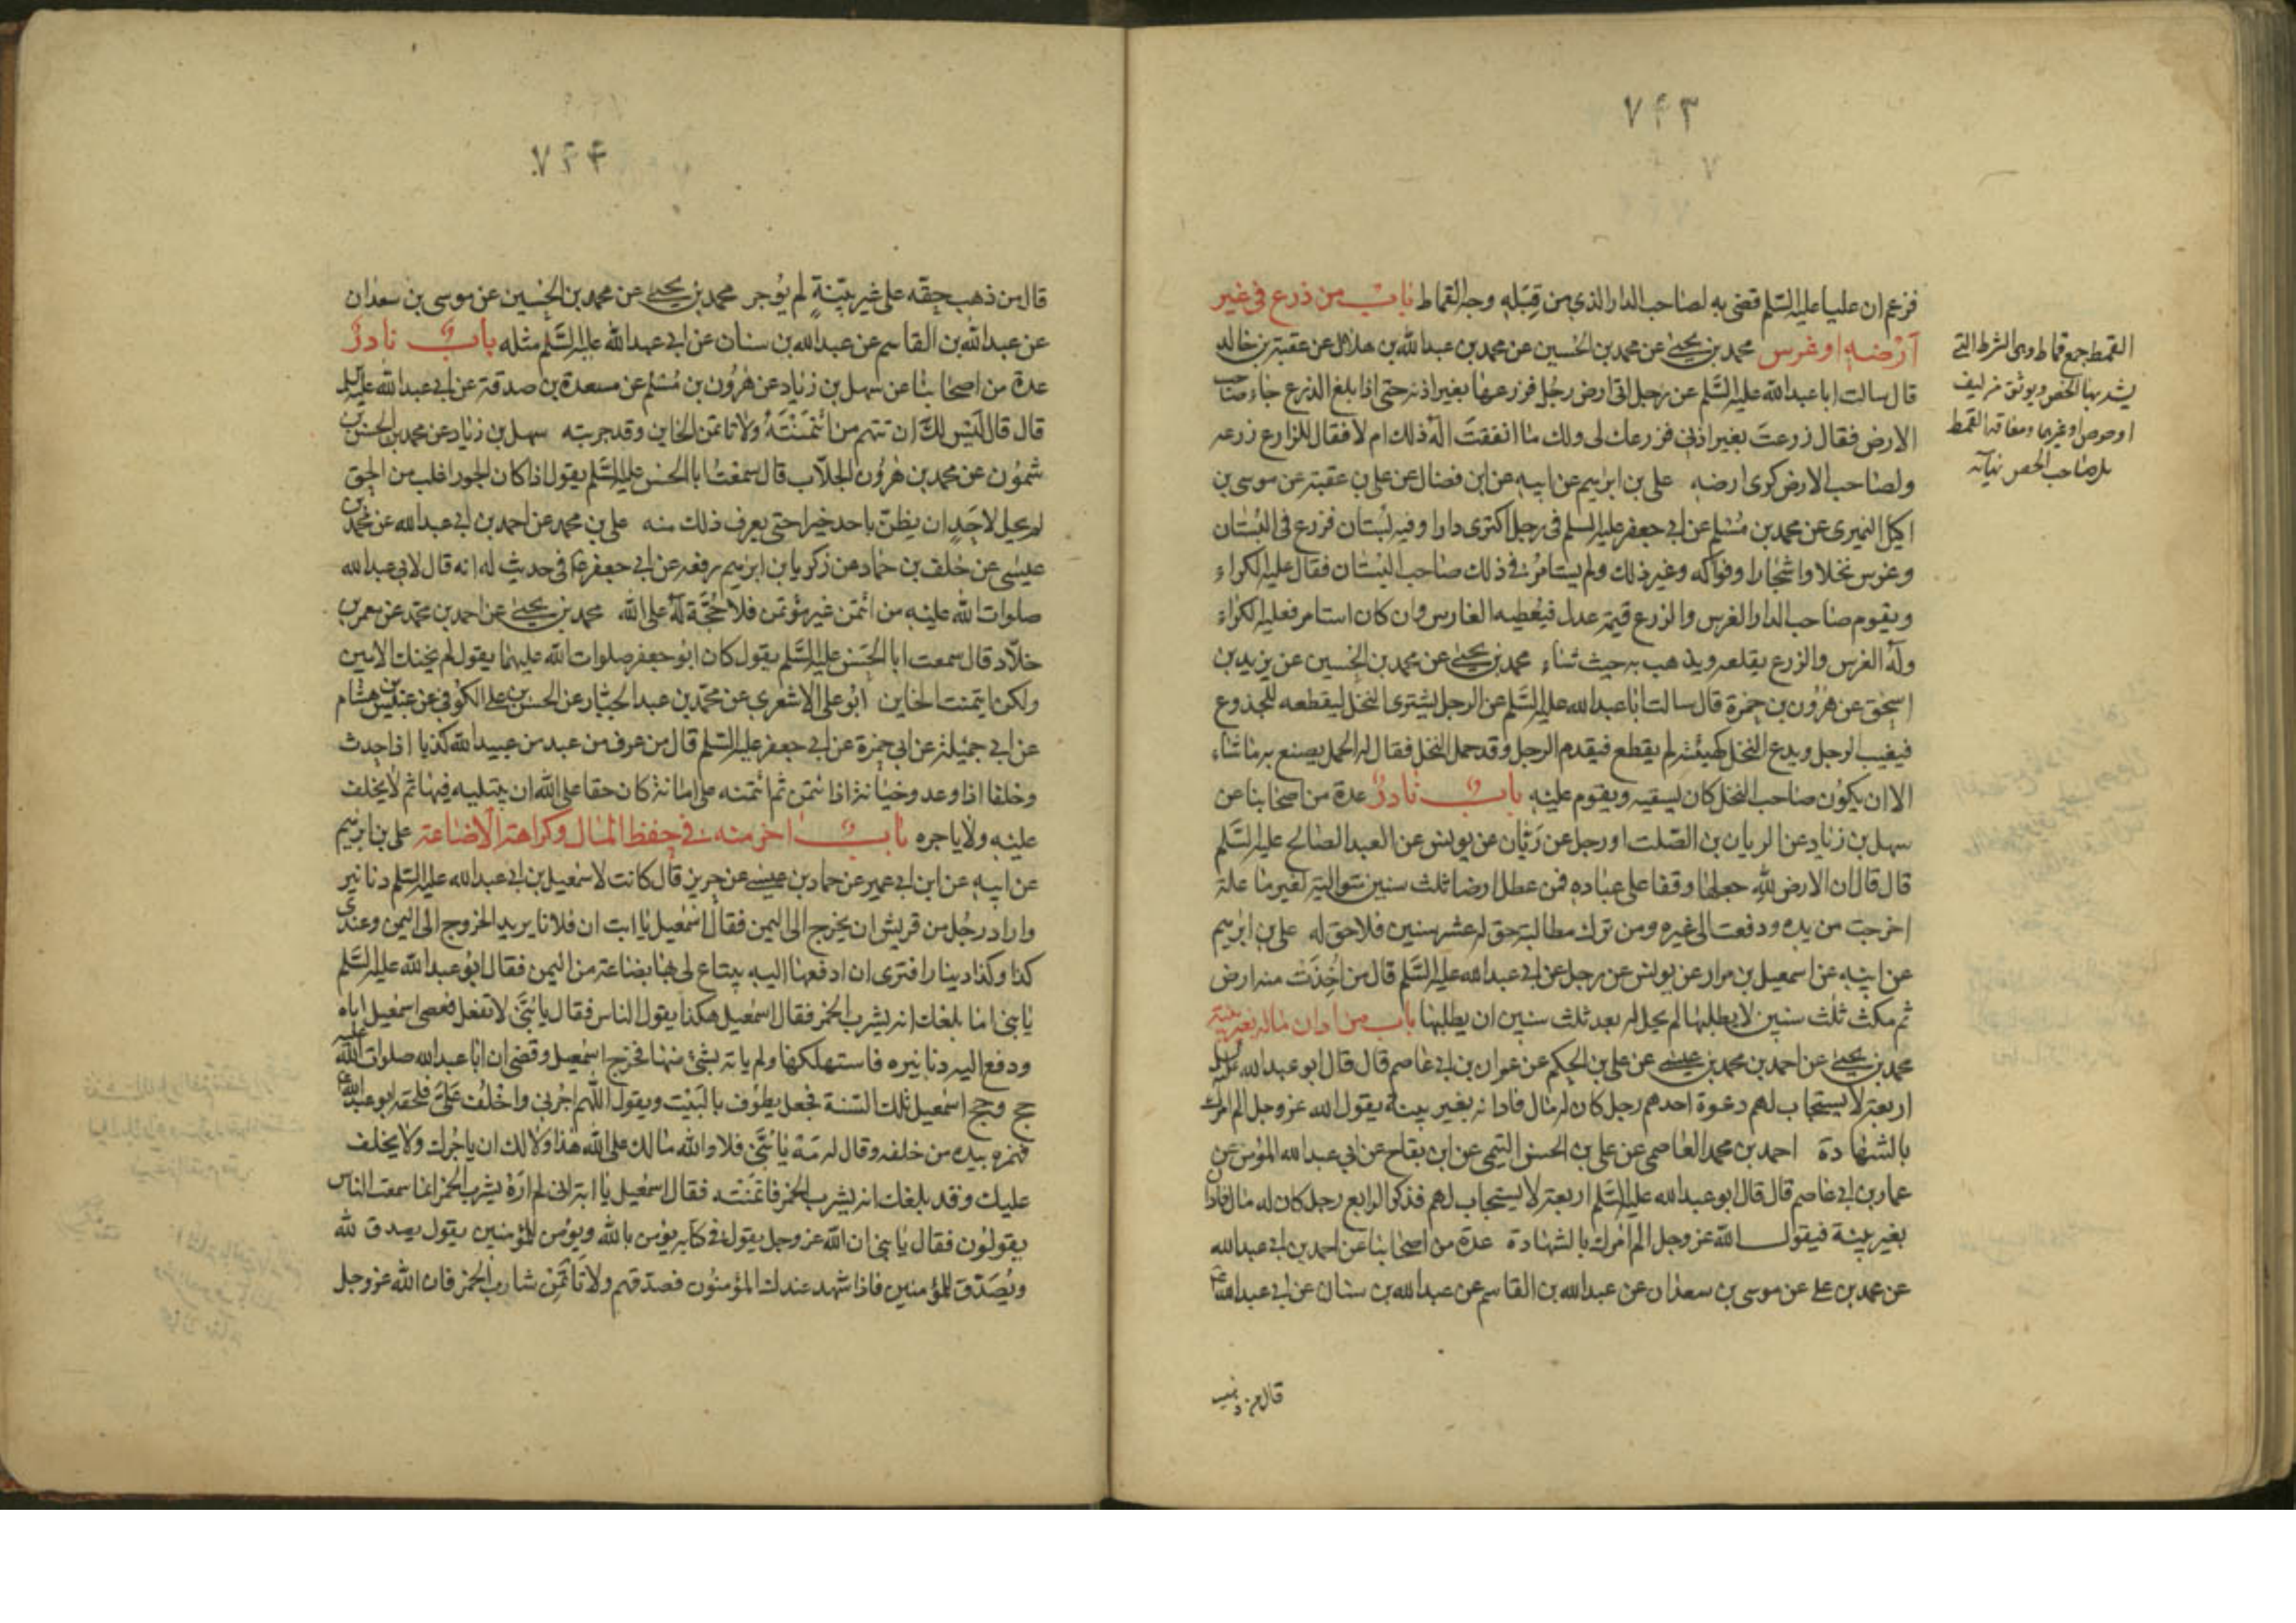 ٧۴٣
فزعم ان عليا عليه السلم قضى به لصاحب الدار الذي من قِبَله وجه القماط باب من زرع في غير
أرْضه او غرس محمد بن يحيى عن محمد بن الحسين عن محمد بن عبدالله بن هلال عن عقبة بن خالد
قال سالت ابا عبدالله عليه السَّلم عن رجل اتى ارض رجُل فزرعها بغير اذنه حتى اذا بلغ الزرع جاء صاحب
الارض فقال زرعتَ بغير اذنى فزرعك لى ولك ما انفقتَ الَهُ ذلك ام لا فقال للزارع زرعه
ولصاحب الارض كرى ارضه على بن ابرٰهيم عن ابيه عن ابن فضال عن على بن عقبة عن موسى بن
اكيل النميرى عن محمد بن مُسْلم عن ابى جعفر عليه السلم فى رجل اكترى دارا وفيه بُستان فزرع فى البُسْتان
وغرس نخلا واشجارا وفواكه وغير ذلك ولم يستامرْ فى ذلك صاحب البستان فقال عليه الكراء
ويقوم صاحب الدار الغرس والزرع قيمة عدل فيُعْطيه الغارس وان كان استامر فعليه الكراء
ولَهُ الغرس والزرع يقلعه ويذهب به حيث شاء محمد بن يحيى عن محمد بن الحسين عن يزيد بن
اسحٰق عن هٰرُون بن حمزة قال سالت ابا عبدالله عليه السَّلم عن الرجل يشترى النخل ليقطعه للجذوع
فيغيب الرجل ويدع النخل كهيئته لم يقطع فيقدم الرجل وقد حمل النخل فقال له الحمل يصنع به ما شاء
الا ان يكون صاحب النخل كان يسقيه ويقوم عليه باب نادرٌ عدة من اصحابنا عن
سهل بن زياد عن الريان بن الصّلت او رجل عن ريّان عن يونس عن العبد الصالح عليه السَّلم
قال قال ان الارض للهِ جعلها وقفا على عباده فمن عطل ارضا ثلث سنين متوالية لغير ما علة
اخرجت من يده ودفعت الى غيره ومن ترك مطالبة حق له عشر سنين فلا حق له على بن ابرٰهيم
عن ابيه عن اسمعيل بن مرار عن يونس عن رجل عن ابى عبدالله عليه السَّلم قال من اُخِذَتْ منه ارض
ثم مكث ثلٰث سنين لا يطلبها لم يحل له بعد ثلث سنين ان يطلبها باب من ادان ماله بغير بينة
محمد بن يحيى عن احمد بن محمد بن عيسى عن على بن الحكم عن عمران بن ابى عاصم قال قال ابو عبدالله عليه السلم
اربعة لا يستجاب لهم دعوة احدهم رجل كان له مال فادانه بغير بينة يقول الله عز وجل الم امرك
بالشهادة احمد بن محمد العاصمى عن على بن الحسن التيمى عن ابن بقاح عن ابى عبدالله المؤمن عن
عمار بن ابى عاصم قال قال ابو عبدالله عليه السَّلم اربعة لا يستجاب لهم فذكر الرابع رجل كان له مال فادانه
بغير بينة فيقول الله عز وجل الم امرك بالشهادة عدة من اصحابنا عن احمد بن ابى عبدالله
عن محمد بن على عن موسى بن سعدان عن عبدالله بن القاسم عن عبدالله بن سنان عن ابى عبدالله
قال من ذهب
القمط جمع قماط وهى الشرط التى
يشد بها الخص ويوثق من ليف
او خوص او غيرها ومعاقد القمط
يلى صاحب الخص نهاية
٧۴۴
قال من ذهب حقه على غير بيّنةٍ لم يُوجر محمد بن يحيى عن محمد بن الحسين عن موسى بن سعدان
عن عبدالله بن القاسم عن عبدالله بن سنان عن ابى عبدالله عليه السَّلم مثله باب نادرٌ
عدة من اصحابنا عن سهل بن زياد عن هٰرُون بن مُسْلم عن مسعدة بن صدقة عن ابى عبدالله عليه السلم
قال قال لَيْس لك ان تتهم من ائتَمَنْتَهُ ولا تاتمن الخاين وقد جربته سهل بن زياد عن محمد بن الحسن بن
شمّون عن محمد بن هٰرُون الجلّاب قال سَمعْتُ ابا الحسن عليه السَّلم يقول اذا كان الجور اغلب من الحق
لم يحل لاحَدٍ ان يظنّ باحد خيرا حتى يعرف ذلك منه على بن محمد عن احمد بن ابى عبدالله عن محمد بن
عيسٰى عن خلف بن حماد عن زكريا بن ابرٰهيم رفعه عن ابى جعفر ع فى حديث له انه قال لابى عبدالله
صلوات الله عليه من ائتمن غير مؤتمن فلا حُجَّة لَهُ على الله محمد بن يحيى عن احمد بن محمّد عن معمر بن
خلّاد قال سمعت ابا الحَسَن عليه السَّلم يقول كان ابو جعفر صلوات الله عليهما يقول لم يخنك الامين
ولكن ايتمنت الخاين ابُو على الاشعرى عن محمّد بن عبد الجبّار عن الحسن بن على الكوفى عن عبيس بن هشام
عن ابى جميلة عن ابى حمزة عن ابى جعفر عليه السّلم قال من عرف من عبد من عبيد الله كذبا اذا حدث
وخلفا اذا وعد وخيانة اذا ائتمن ثم ائتمنه على امانة كان حقا على الله ان يبتليه فيها ثم لا يخلف
عليه ولا ياجره باب اخر منه فى حفظ المال وكراهة الاضاعة على بن ابرٰهيم
عن ابيه عن ابن ابى عمير عن حماد بن عيسى عن حريز قال كانت لاسمٰعيل بن ابى عبدالله عليه السّلم دنانير
واراد رجُل من قريش ان يخرج الى اليمن فقال اسْمٰعيل يا ابت ان فلانا يريد الخروج الى اليمن وعندى
كذا وكذا دينارا فترى ان ادفعها اليه يبتاع لى بها بضاعة من اليمن فقال ابو عبدالله عليه السَّلم
يابنى اما بلغك انه يشرب الخمر فقال اسمٰعيل هكذا يقول الناس فقال يا بُنَىَّ لا تفعل فعصى اسمٰعيل اباه
ودفع اليه دنانيره فاستهلكها ولم ياته بشئ منها فخرج اسمٰعيل وقضى ان ابا عبدالله صلوات الله عليه
حج وحج اسمٰعيل تلك السّنة فجعل يطُوف بالبَيْت ويقول اللّهم اجُرنى واخْلُف عَلَىَّ فلحقه ابو عبدالله ع
فهمزه بيده من خلفه وقال له مَهْ يا بُنَىَّ فلا والله ما لك على الله هٰذا ولا لك ان ياجُرك ولا يخلف
عليك وقد بلغك انه يشرب الخمر فائتمنته فقال اسمٰعيل يا ابه انى لم ارَهُ يشرب الخمر انما سمعت الناس
يقولون فقال يا بنى ان الله عز وجل يقول فى كتابه يؤمن بالله ويؤمن للمؤمنين يقول يصدق لله
ويُصَدّق للمؤمنين فاذا شهد عندك المؤمنون فصدقهم ولا تاتمن شارب الخمر فان الله عز وجل